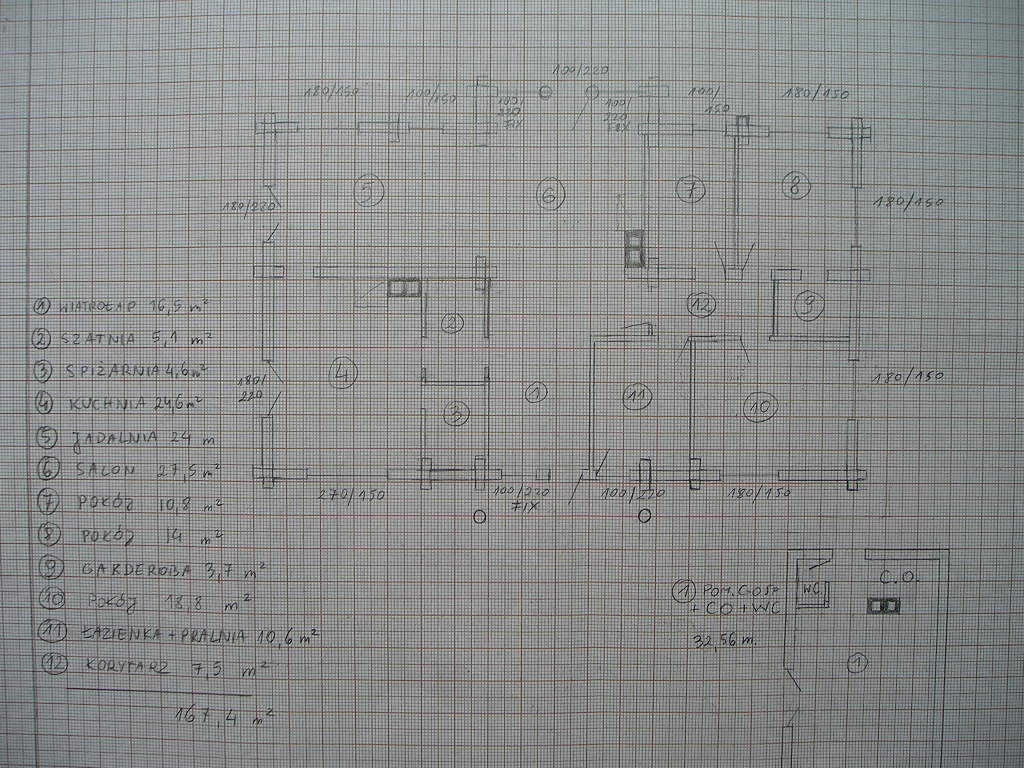 100/220
180/150
100/150
100/
220
FIX
100/
220
FIX
100/
150
180/150
5
6
7
8
180/220
180/150
12
9
2
4
3
1
11
10
180/
220
180/150
270/150
100/220
FIX
100/220
180/150
1 WIATROŁAP 16,5 m²
2 SZATNIA 5,1 m²
3 SPIŻARNIA 4,6 m²
4 KUCHNIA 24,6 m²
5 JADALNIA 24 m
6 SALON 27,5 m²
7 POKÓJ 10,8 m²
8 POKÓJ 14 m²
9 GARDEROBA 3,7 m²
10 POKÓJ 18,8 m²
11 ŁAZIENKA + PRALNIA 10,6 m²
12 KORYTARZ 7,5 m²
167,4 m²
1 POM. GOSP
+ CO + WC
32,56 m.
WC
C.O.
1